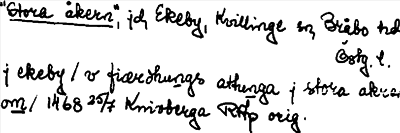 "Stora åkern", jd, Ekeby, Kvillinge sn, Bråbo hd
Östg. l.
j ekeby / v fiærdhungs athunga j stora akræ
om / 1468 25/7 Knivberga RAp orig.